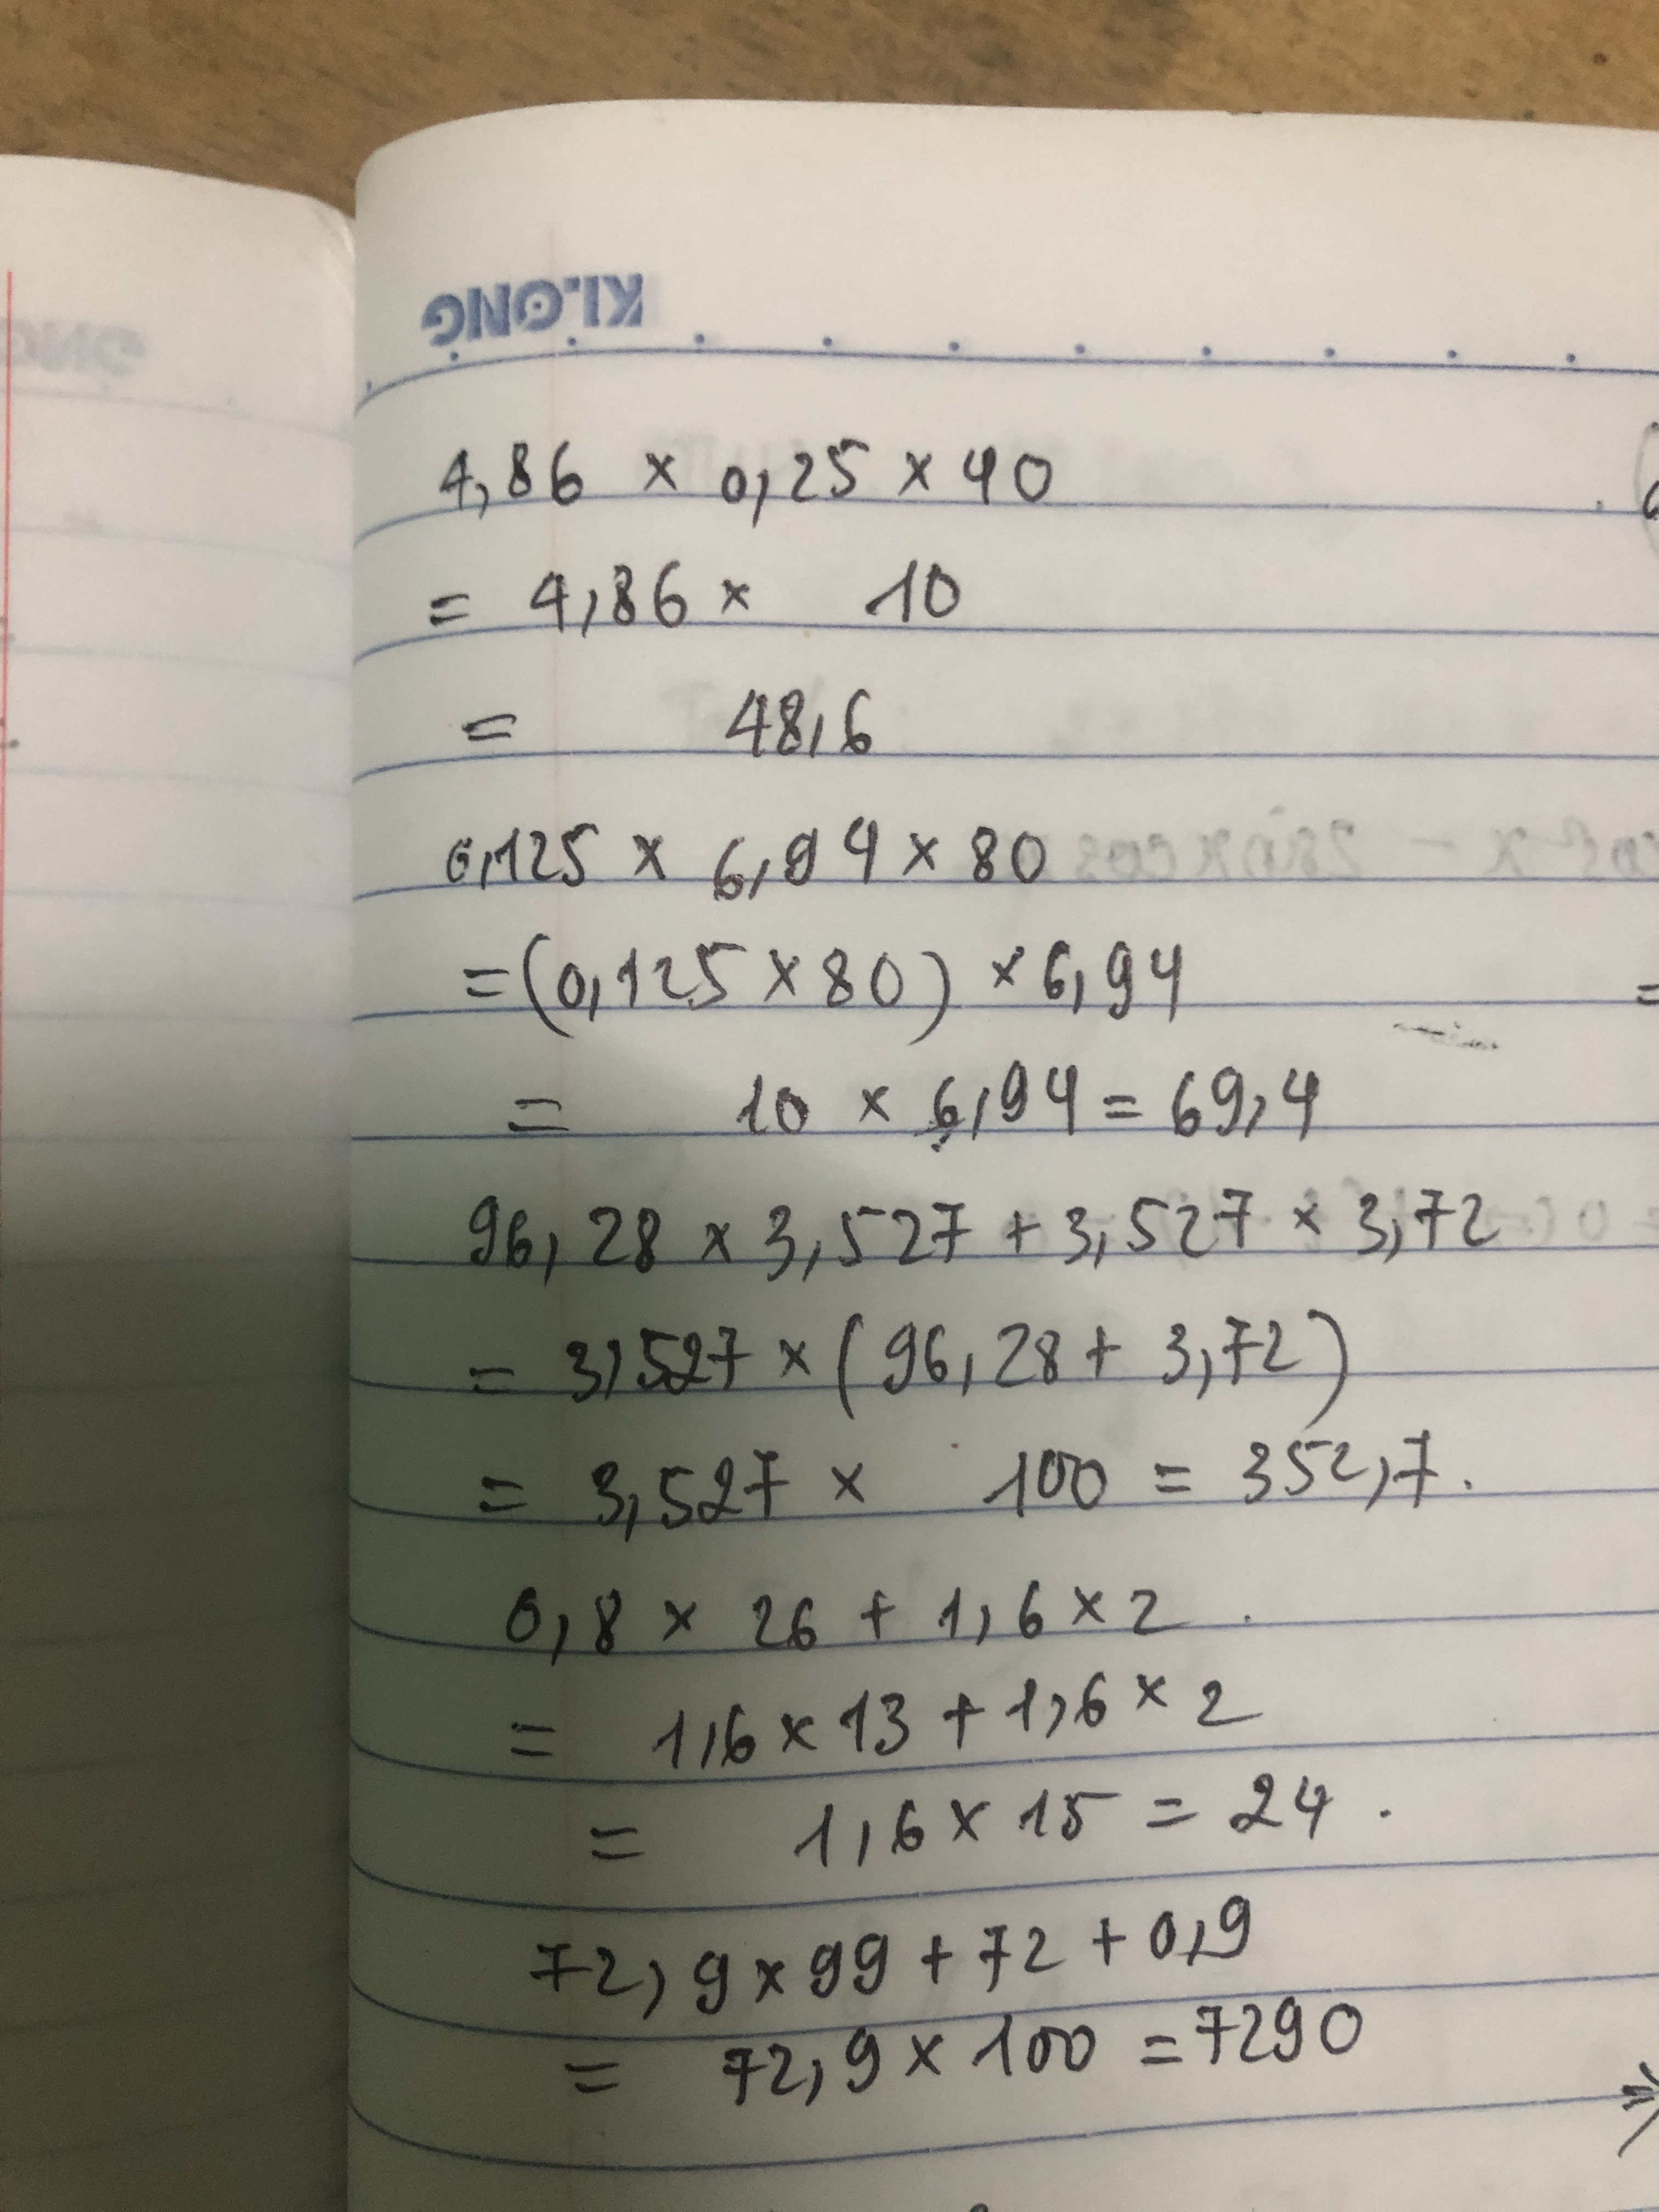 KLONG
4,86 × 0,25 × 40
= 4,86 × 10
= 48,6
0,125 × 6,94 × 80
= (0,125 × 80) × 6,94
= 10 × 6,94 = 69,4
96,28 × 3,527 + 3,527 × 3,72
= 3,527 × (96,28 + 3,72)
= 3,527 × 100 = 352,7.
0,8 × 26 + 1,6 × 2
= 1,6 × 13 + 1,6 × 2
= 1,6 × 15 = 24.
72,9 × 99 + 72 + 0,9
= 72,9 × 100 = 7290